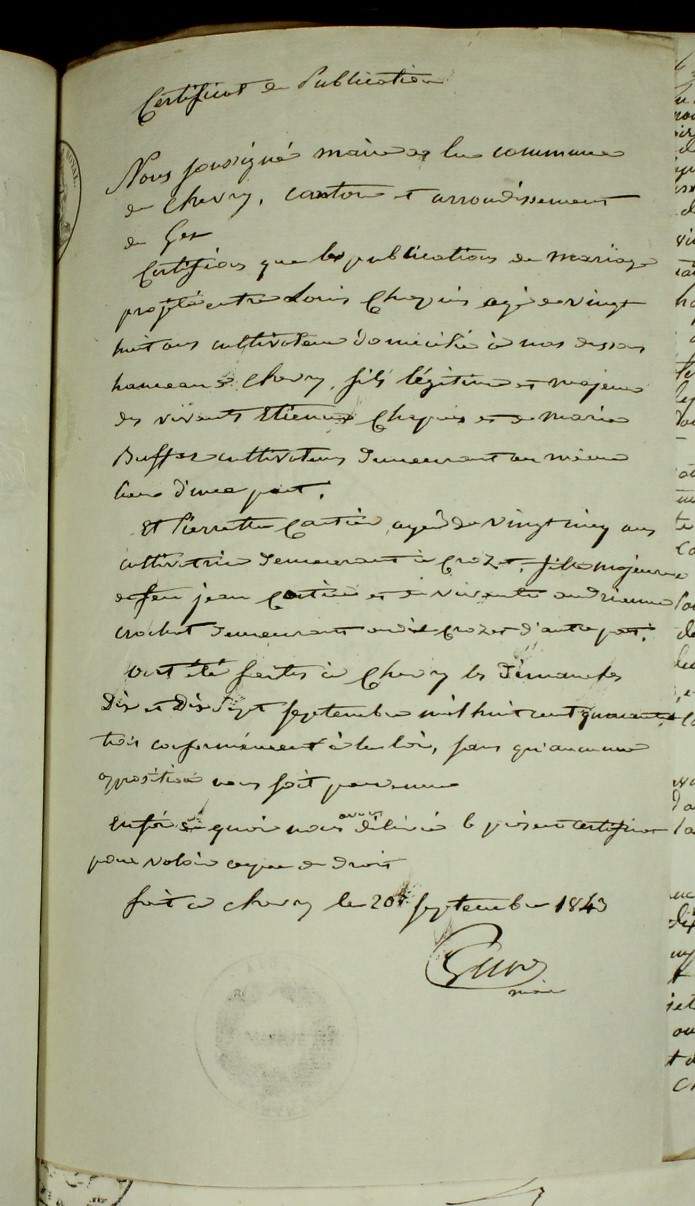 Certificat de Publication
Nous soussigné maire de la commune
de Chevry, canton et arrondissement
de Gex
Certifions que les publications de mariage
projeté entre Louis Chapuis agé de vingt
huit ans cultivateur domicilié à
hameau de Chevry, fils légitime et majeur
des vivants Etienne Chapuis et de Marie
Buffas cultivateurs demeurant au même
lieu d'une part.
Et Pierrette Cartier, agée de vingt cinq ans
cultivatrice demeurant à Crozet, fille majeure
de feu jean Cartier et de vivante andrienne
crochat demeurante au dit Crozet d'autre part.
Ont été faites à Chevry les Dimanches
Dix et Dix Sept Septembre mil huit cent quarante
trois conformément à la loi, sans qu'aucune
opposition nous soit parvenue
En foi de quoi nous avons délivré le présent certificat
pour valoir ce que de droit
fait à chevry le 20 Septembre 1843
maire